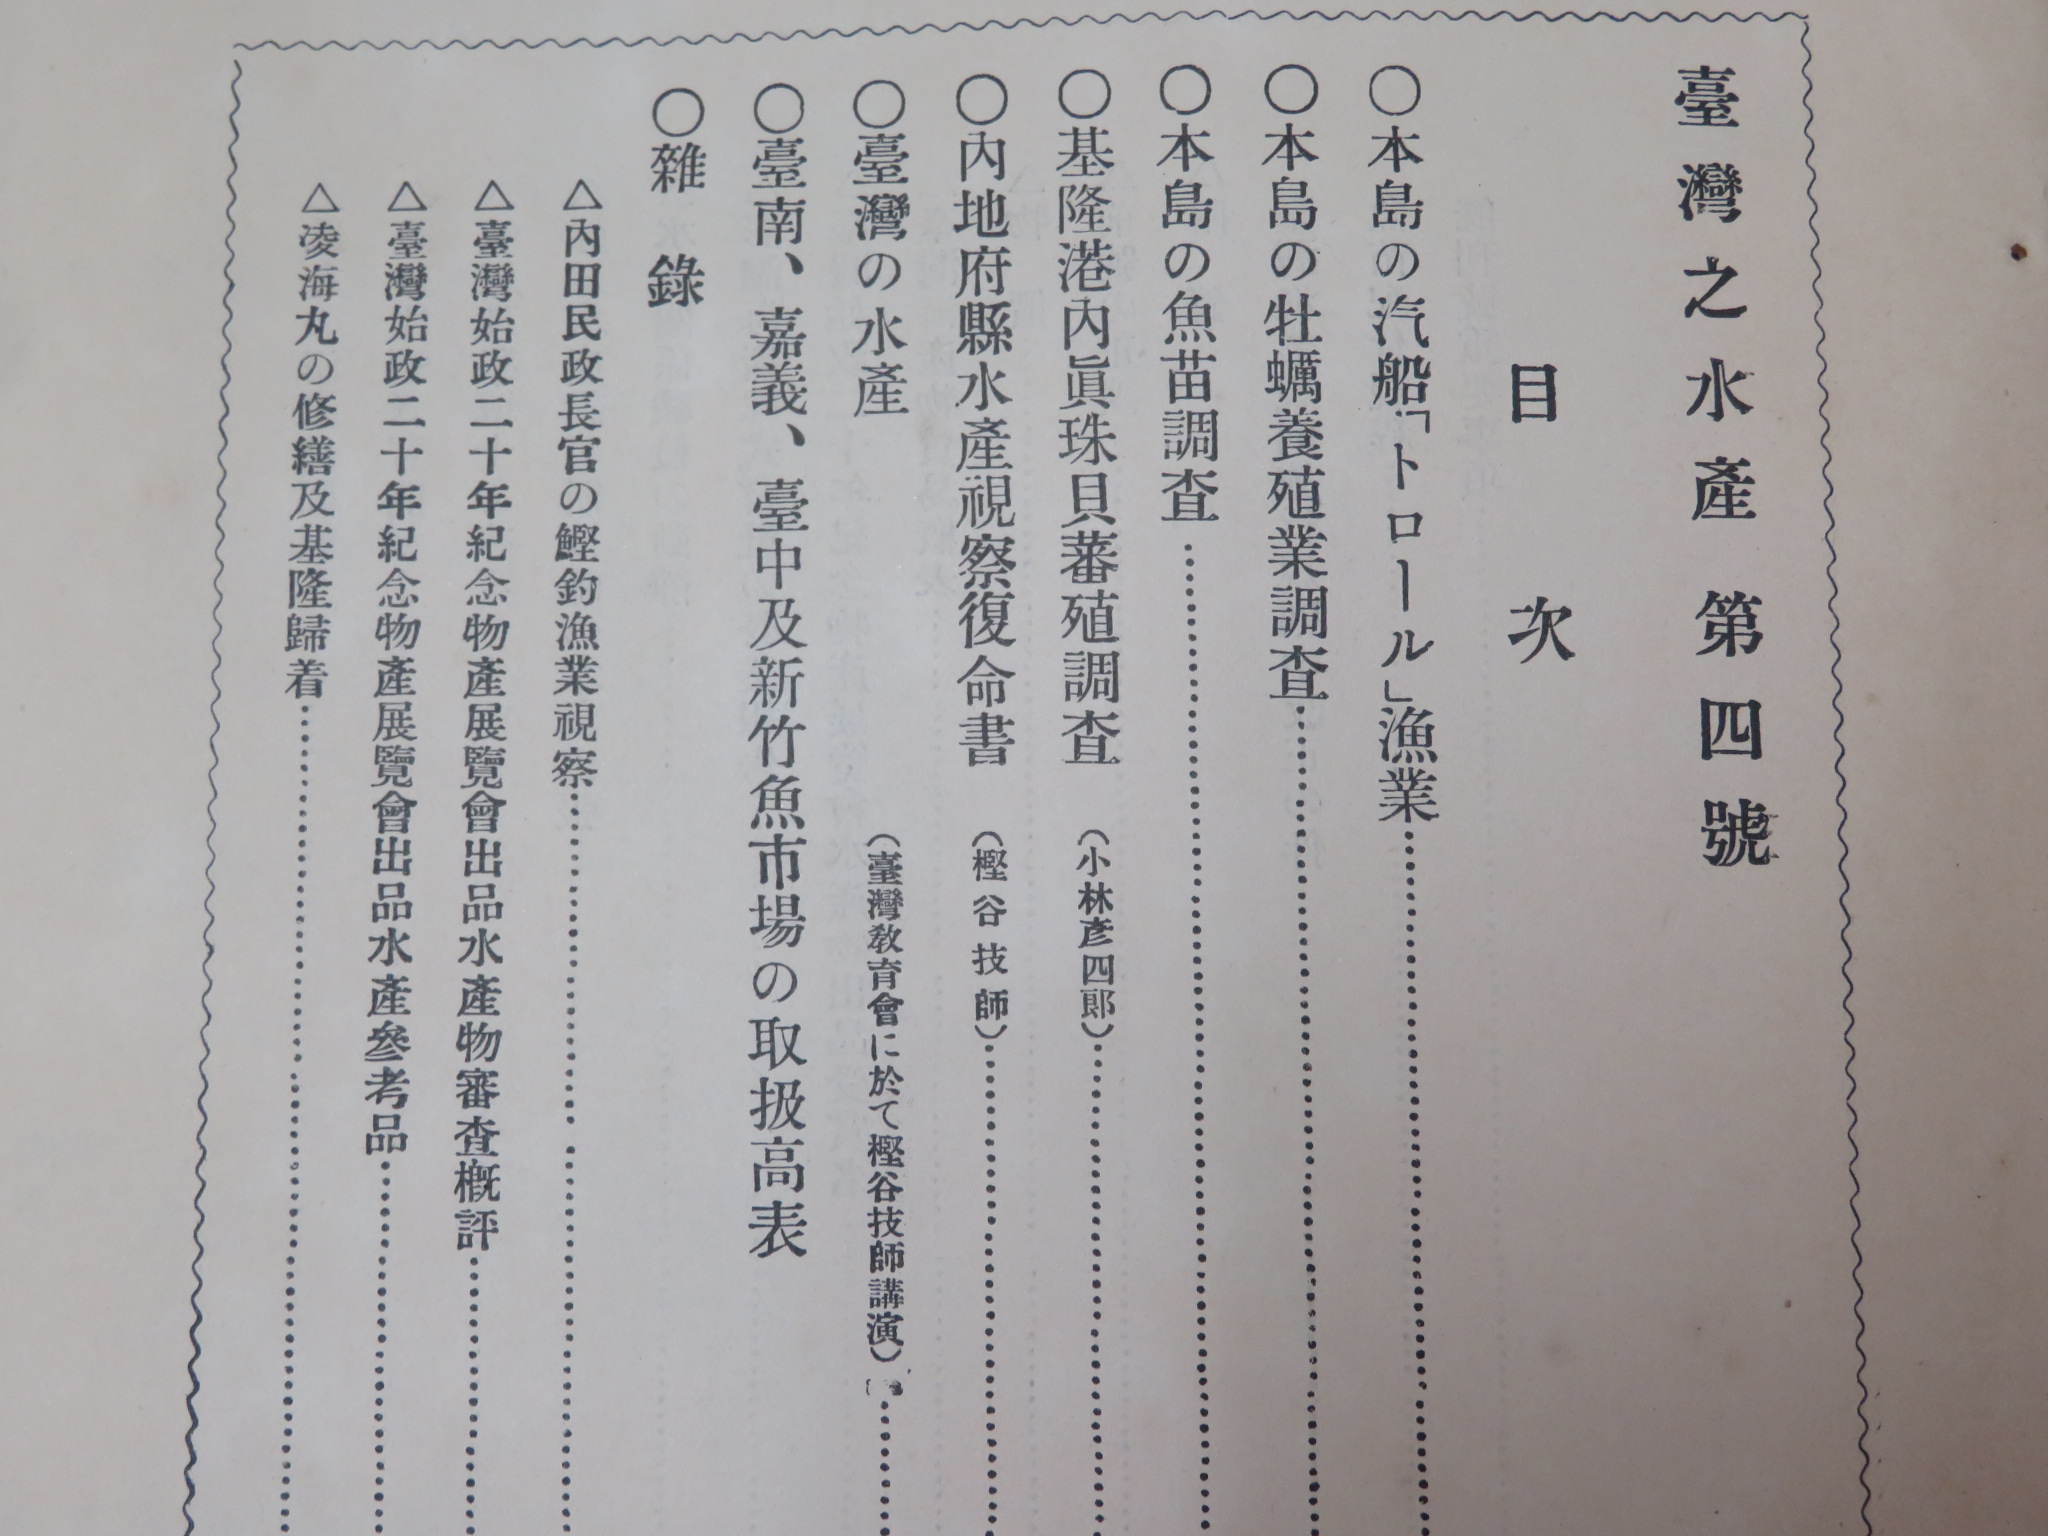 臺灣之水產 第四號
目次
○本島の汽船「トロール」漁業
○本島の牡蠣養殖業調查
○本島の魚苗調查
○基隆港內眞珠貝蕃殖調查 (小林彥四郞)
○內地府縣水產視察復命書 (樫谷技師)
○臺灣の水產 (臺灣敎育會に於て樫谷技師講演)
○臺南、嘉義、臺中及新竹魚市場の取扱高表
○雜錄
△內田民政長官の鰹釣漁業視察
△臺灣始政二十年紀念物產展覽會出品水產物審查槪評
△臺灣始政二十年紀念物產展覽會出品水產參考品
△凌海丸の修繕及基隆歸着